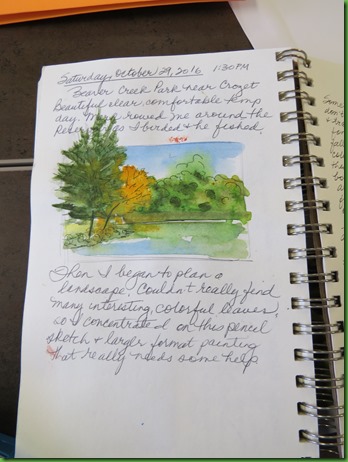 Saturday, October 29, 2016 1:30PM
Beaver Creek Park near Crozet
Beautiful clear, comfortable temp
day. rowed me around the
as I birded & he fished,
Then I began to plan a
landscape. Couldn't really find
many interesting, colorful leaves,
so I concentrated on this pencil
sketch & larger format painting
that really needs some help